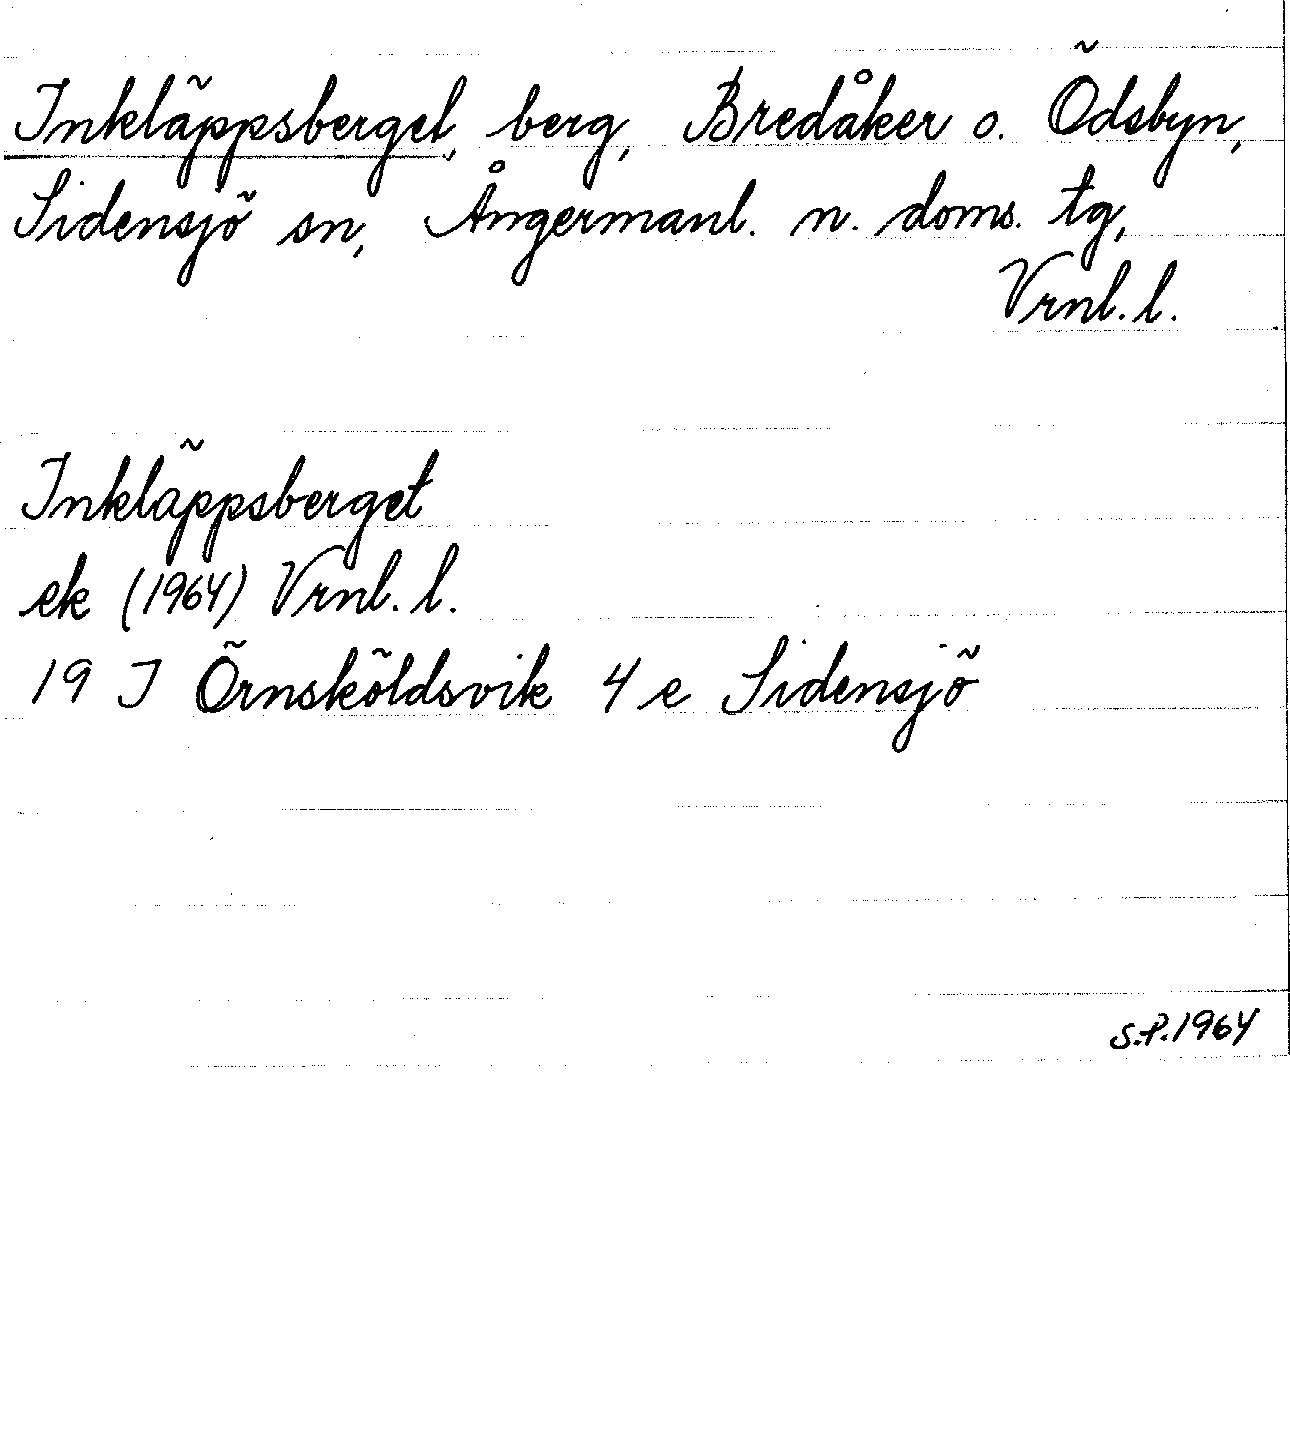 Inkläppsberget, berg, Bredåker o. Ödsbyn,
Sidensjö sn, Ångermanl. n. doms. tg,
Vrnl. l.
Inkläppsberget
ek (1964) Vrnl. l.
19 I Örnsköldsvik 4 e Sidensjö
S.P. 1964